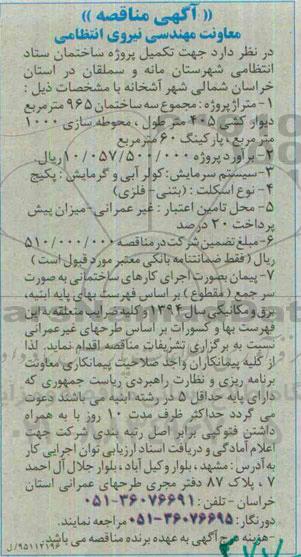 (( آگهی مناقصه ))
معاونت مهندسی نیروی انتظامی
در نظر دارد جهت تکمیل پروژه ساختمان ستاد
انتظامی شهرستان مانه و سملقان در استان
خراسان شمالی شهر آشخانه با مشخصات ذیل :
۱- متراژ پروژه : مجموع سه ساختمان ۹۶۵ مترمربع
دیوار کشی ۴۰۵ متر طول ، محوطه سازی ۱۰۰۰
متر مربع ، پارکینگ ۶۰ مترمربع
۲- برآورد پروژه ۱۰/۰۵۷/۵۰۰/۰۰۰ ریال.
۳-سیستم سرمایش : کولر آبی و گرمایش : پکیج
۴- نوع اسکلت : (بتنی - فلزی)
۵- محل تامین اعتبار : غیر عمرانی-میزان پیش
پرداخت ۲۰ درصد
۶-مبلغ تضمین شرکت در مناقصه ۵۱۰/۰۰۰/۰۰۰
ریال ( فقط ضمانتنامه بانکی معتبر مورد قبول است )
۷- پیمان بصورت اجرای کارهای ساختمانی به صورت
سر جمع ( مقطوع ) بر اساس فهرست بهای پایه ابنیه ،
برق و مکانیکی سال ۱۳۹۴ و کلیه ضرایب متعلقه به این
فهرست بها و کسورات بر اساس طرحهای غیرعمرانی
نسبت به برگزاری تشریفات مناقصه اقدام نماید. لذا
از کلیه پیمانکاران واجد صلاحیت پیمانکاری معاونت
برنامه ریزی و نظارت راهبردی ریاست جمهوری که
دارای پایه حداقل ۵ در رشته ابنیه می باشند دعوت
می گردد حداکثر ظرف مدت ۱۰ روز با به همراه
داشتن فتوکپی برابر اصل رتبه بندی شرکت جهت
اعلام آمادگی و دریافت اسناد ارزیابی توان اجرایی کار
به آدرس : مشهد ، بلوار وکیل آباد ، بلوار جلال آل احمد
۷ ، پلاک ۸۷ دفتر مجری طرحهای عمرانی استان
خراسان - تلفن : ۳۶۰۷۶۶۹۱-۰۵۱
دورنگار : ۳۶۰۷۶۶۹۵-۰۵۱ مراجعه نمایند.
-هزینه درج آگهی به عهده برنده مناقصه می باشد.
۹۵۱۱۲۱۹۶/ل